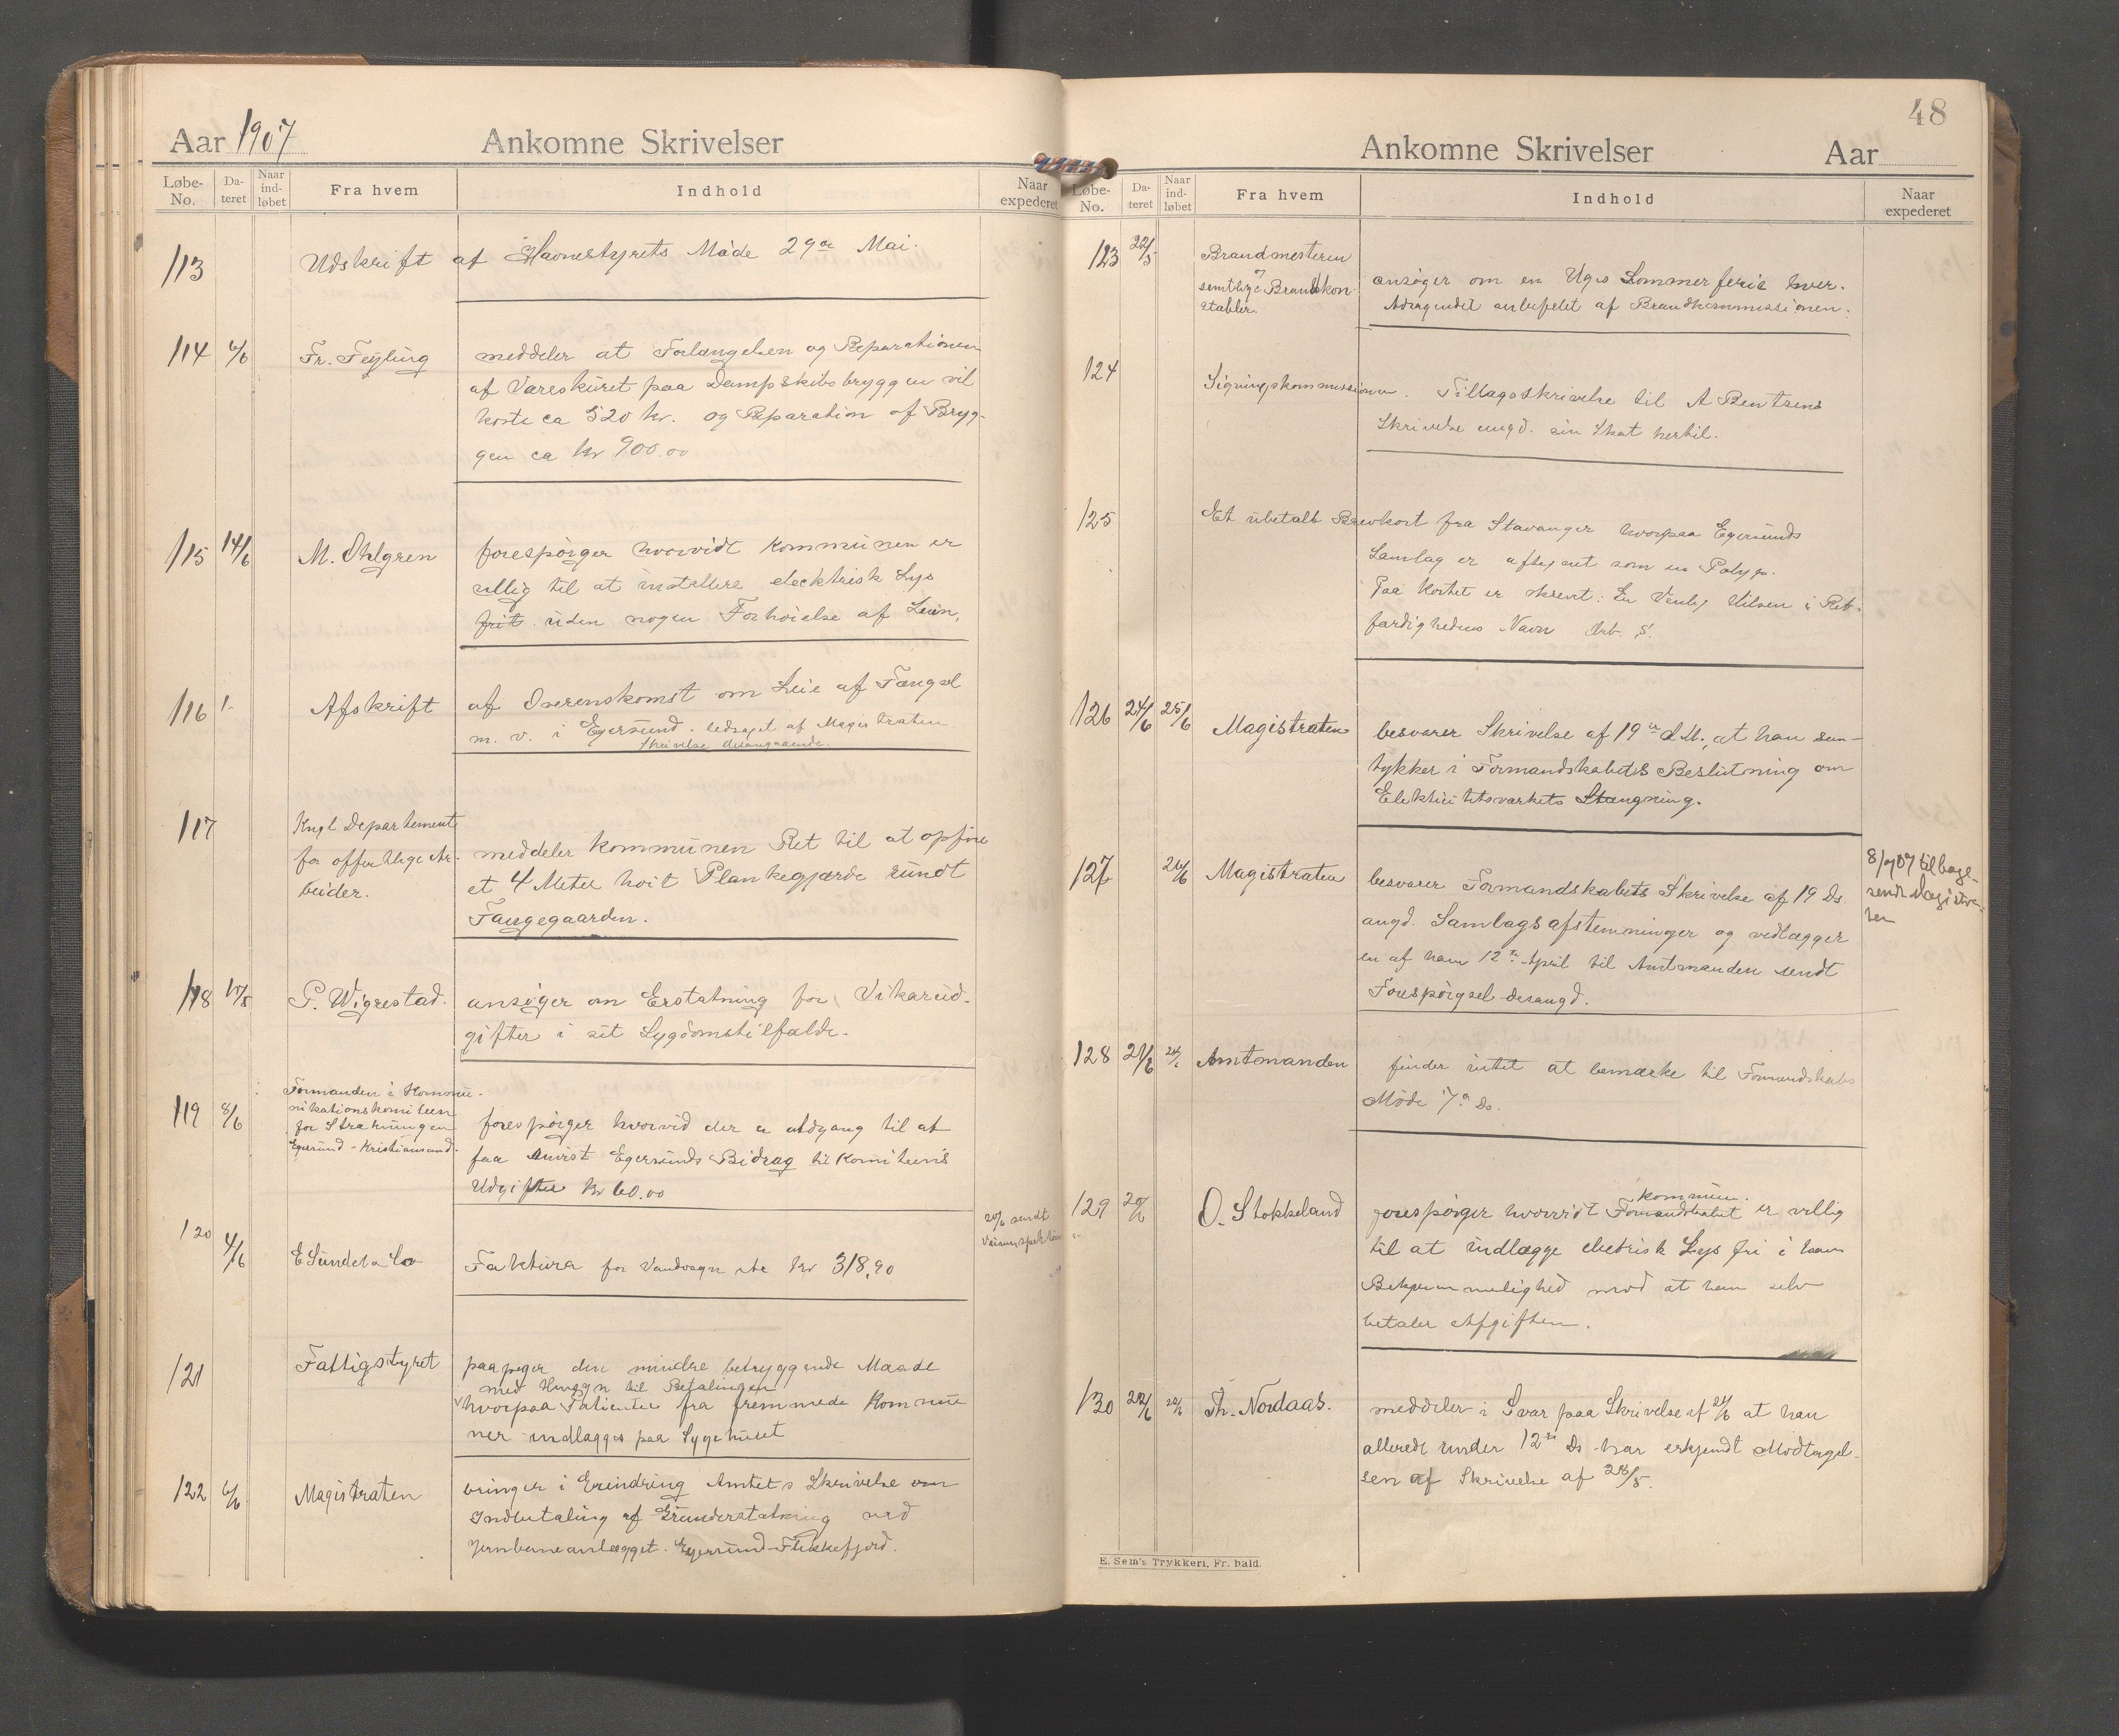 Aar 1907 Ankomne Skrivelser
Løbe-No. Dateret Naar indløbet Fra hvem Indhold Naar expederet
113 Udskrift af Havnestyrets Møde 29de Mai.
114 6/6 Fr. Feyling meddeler at Forlængelsen og Reparationen
af Vareskuret paa Dampskibsbryggen vil
koste ca 520 kr. og Reparation af Bryg-
gen ca kr 900.00
115 14/6 M. Ohlgren forespørger hvorvidt Kommunen er
villig til at installere elecktrisk Lys
frit uden nogen Forhøielse af Leien,
116 Afskrift af Overenskomst om Leie af Fængsel
m. v. i Egersund. ledsaget af Magistratens
Skrivelse desangaaende.
117 Kngl Departement
for offentlige Ar-
beider.
meddeler Kommunen Ret til at opføre
et 4 Meter høit Plankegjærde rundt
Fangegaarden.
118 17/5 P. Wigrestad. ansøger om Erstatning for Vikarud-
gifter i sit Sygdomstilfælde.
119 8/6 Formanden i Kommu-
nikationskomiteen
for Strækningen
Egersund - Kristiansand.
forespørger hvorvid der er adgang til at
faa anvist Egersunds Bidrag til Komiteens
Udgifter kr 60.00
120 4/6 E Sunde & Co Faktura for Vandvogn kr 318,90
20/6 sendt
121 Fattigstyret paapeger den mindre betryggende Maade
med Hensyn til Betalingen
hvorpaa Patienter fra fremmede Kommu
ner indlægges paa Sygehuset
122 6/6 Magistraten bringer i Erindring Amtets Skrivelse om
Indbetaling af Grunderstatning ved
Jernbaneanlægget. Egersund-Flekkefjord.
48
Ankomne Skrivelser Aar
Løbe-No. Dateret Naar indløbet Fra hvem Indhold Naar expederet
123 22/5 Brandmesteren
og
samtlige Brandkon-
stabler.
ansøger om en Uges Sommerferie hver.
Andragendet anbefalet af Brandkommissionen.
124 Ligningskommissionen. Tillægsskrivelse til A Bentsens
Skrivelse angd. sin Skat hertil.
125 Et ubetalt Brevkort fra Stavanger hvorpaa Egersunds
Samlag er aftegnet som en Polyp.
Paa Kortet er skrevt: En Venlig Hilsen i Ret-
færdighedens Navn Arb. S.
126 24/6 25/6 Magistraten besvarer Skrivelse af 19de d. M., at han sam-
tykker i Formandskabets Beslutning om
Elektricitetsværkets Stængning.
127 26/6 Magistraten besvarer Formandskabets Skrivelse af 19 Ds.
angd. Samlagsafstemninger og vedlægger
en af ham 12te April til Amtmanden sendt
Forespørgsel desangd.
8/7 07 tilbage-
sendt Magistra-
ten
128 21/6 Amtmanden finder intet at bemærke til Formandskabs
Møde 7de Ds.
129 20/6 O. Stokkeland kommun.
forespørger hvorvidt Formandskabet er villig
til at indlægge elektrisk Lys fri i hans
Bekvemmelighed mod at han selv
betaler Afgiften.
130 22/6 Th. Nordaas. meddeler i Svar paa Skrivelse af 21/6 at han
allerede under 12te Ds har erkjendt Modtagel-
sen af Skrivelse af 28/5.
E. Sem's Trykkeri, Fr. hald.